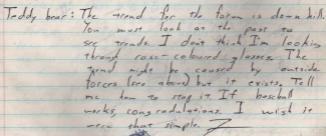 Teddy bear: The trend for the forum is down hill.
You must look at the past to
see trends. I dont think I'm looking
through rose-coloured glasses. The
trend might be caused by outside
forces (see above) but it exists. Tell
me how to stop it. If baseball
works, congradulations. I wish it
were that simple